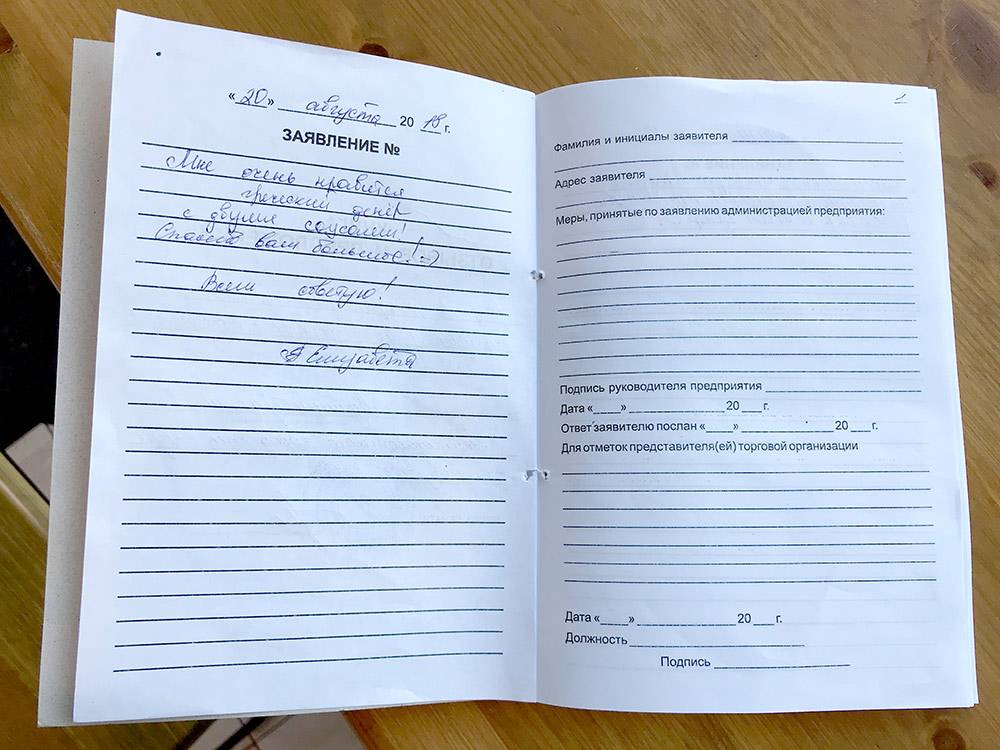 « 20 » августа 20 18 г.
ЗАЯВЛЕНИЕ №
Мне очень нравится
греческий денер
с двумя соусами!
Спасибо вам большое! :-)
Всем советую!
Елизавета
1
Фамилия и инициалы заявителя
Адрес заявителя
Меры, принятые по заявлению администрацией предприятия:
Подпись руководителя предприятия
Дата «____» ________________ 20 ___ г.
Ответ заявителю послан «____» ________________ 20 ___ г.
Для отметок представителя(ей) торговой организации
Дата «____» ________________ 20 ___ г.
Должность
Подпись